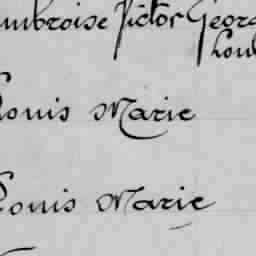 Ambroise Victor Georg
Loui
Louis Marie
Louis Marie